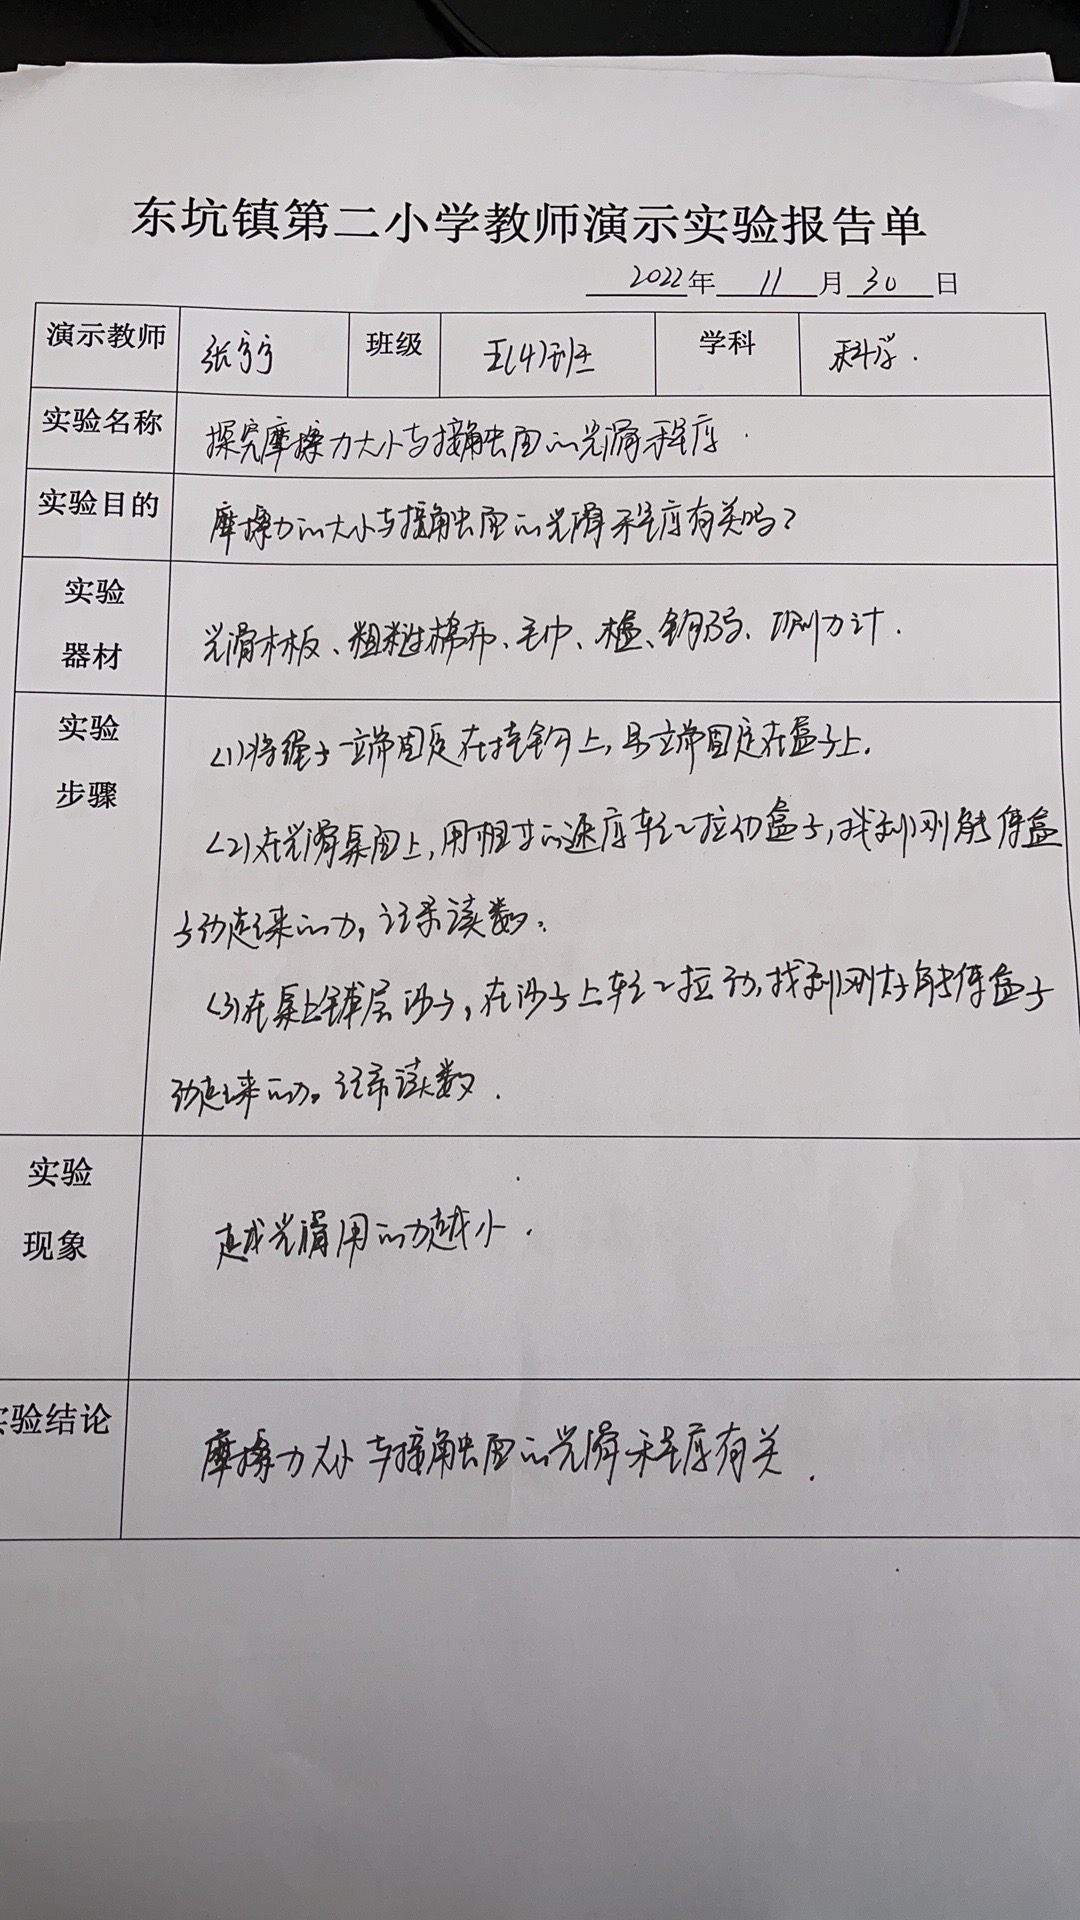 东坑镇第二小学教师演示实验报告单
2022年 11 月 30 日
演示教师 张宁宁 班级 五(4)班 学科 科学.
实验名称 探究摩擦力大小与接触面的光滑程度.
实验目的 摩擦力的大小与接触面的光滑程度有关吗?
实验
器材
光滑木板、粗糙棉布、毛巾、 、钩码、测力计.
实验
步骤
(1)将绳子一端固定在挂钩上,另一端固定在盒子上.
(2)在光滑桌面上,用相互的速度轻轻拉动盒子,找到刚能使盒
子动起来的力,记录读数.
(3)在桌上铺层沙子,在沙子上轻轻拉动,找到刚好能使盒子
动起来的力。记录读数.
实验
现象
越光滑用的力越小.
实验结论 摩擦力大小与接触面的光滑程度有关.